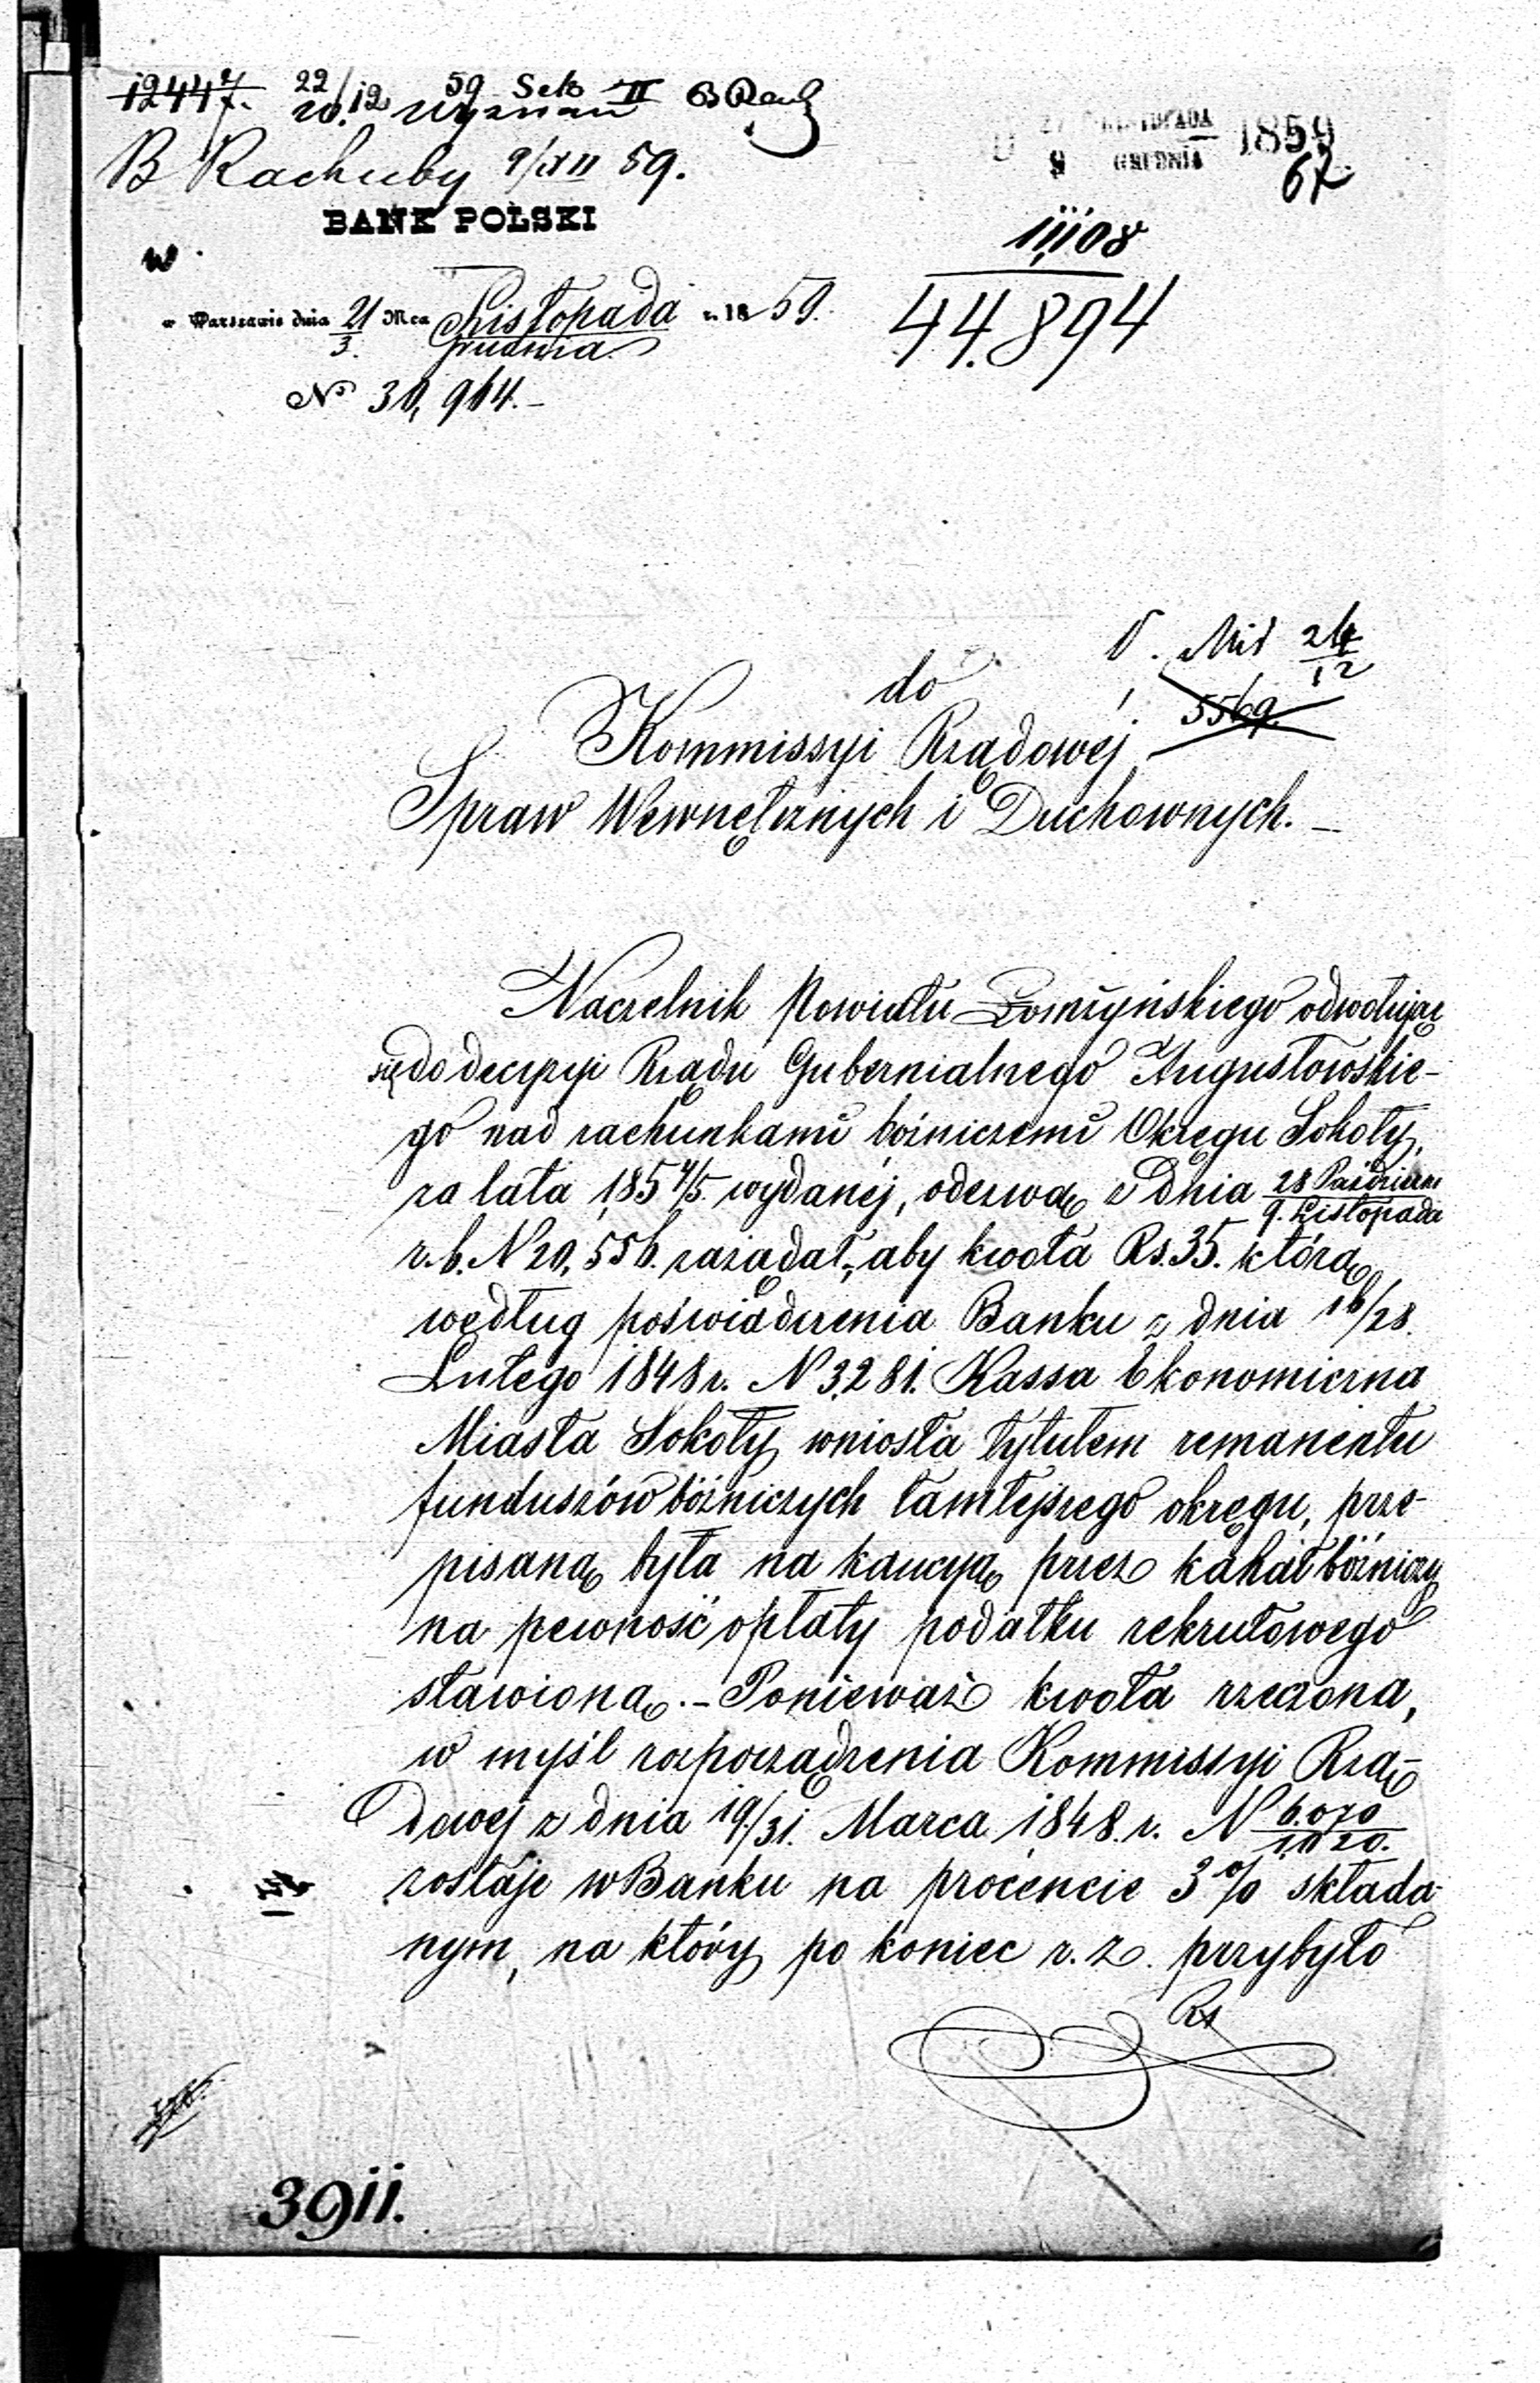 12447. 22/12 59 Sek II B Rach
w. Wyznań
B Rachuby 9/XII 59.
27 LISTOPADA
9 GRUDNIA 1859
67
BANK POLSKI
w Warszawie dnia 21/3. Mca Listopada/Grudnia r. 1859.
11,108
44.894
No 30,964.-
do
24/12
5569.
Kommissyi Rządowej
Spraw Wewnętrznych i Duchownych. -
Naczelnik Powiatu Łomżyńskiego odwołując
się do decyzyi Rządu Gubernialnego Augustowskie-
go nad rachunkami bóżniczemi Okręgu Sokoły,
za lata 1854/5. wydanéj, odezwą z dnia 28 Paździer./9. Listopada
r. b. N 20,556. zażądał, aby kwota Rs. 35. którą
według poświadczenia Banku z dnia 16/28.
Lutego 1848 r. N 3,281. Kassa Ekonomiczna
Miasta Sokoły wniosła tytułem remanentu
funduszów bóżniczych tamtejszego okręgu, prze-
pisaną była na kaucyą przez kahał bóżniczy
na pewność opłaty podatku rekrutowego
stawioną. - Ponieważ kwota rzeczona,
w myśl rozporządzenia Kommissyi Rzą-
dowej z dnia 19./31. Marca 1848. r. N 6.070/1020.
zostaje w Banku na procencie 3 % składa-
nym, na który po koniec r. z. przybyło
Rs
3911.